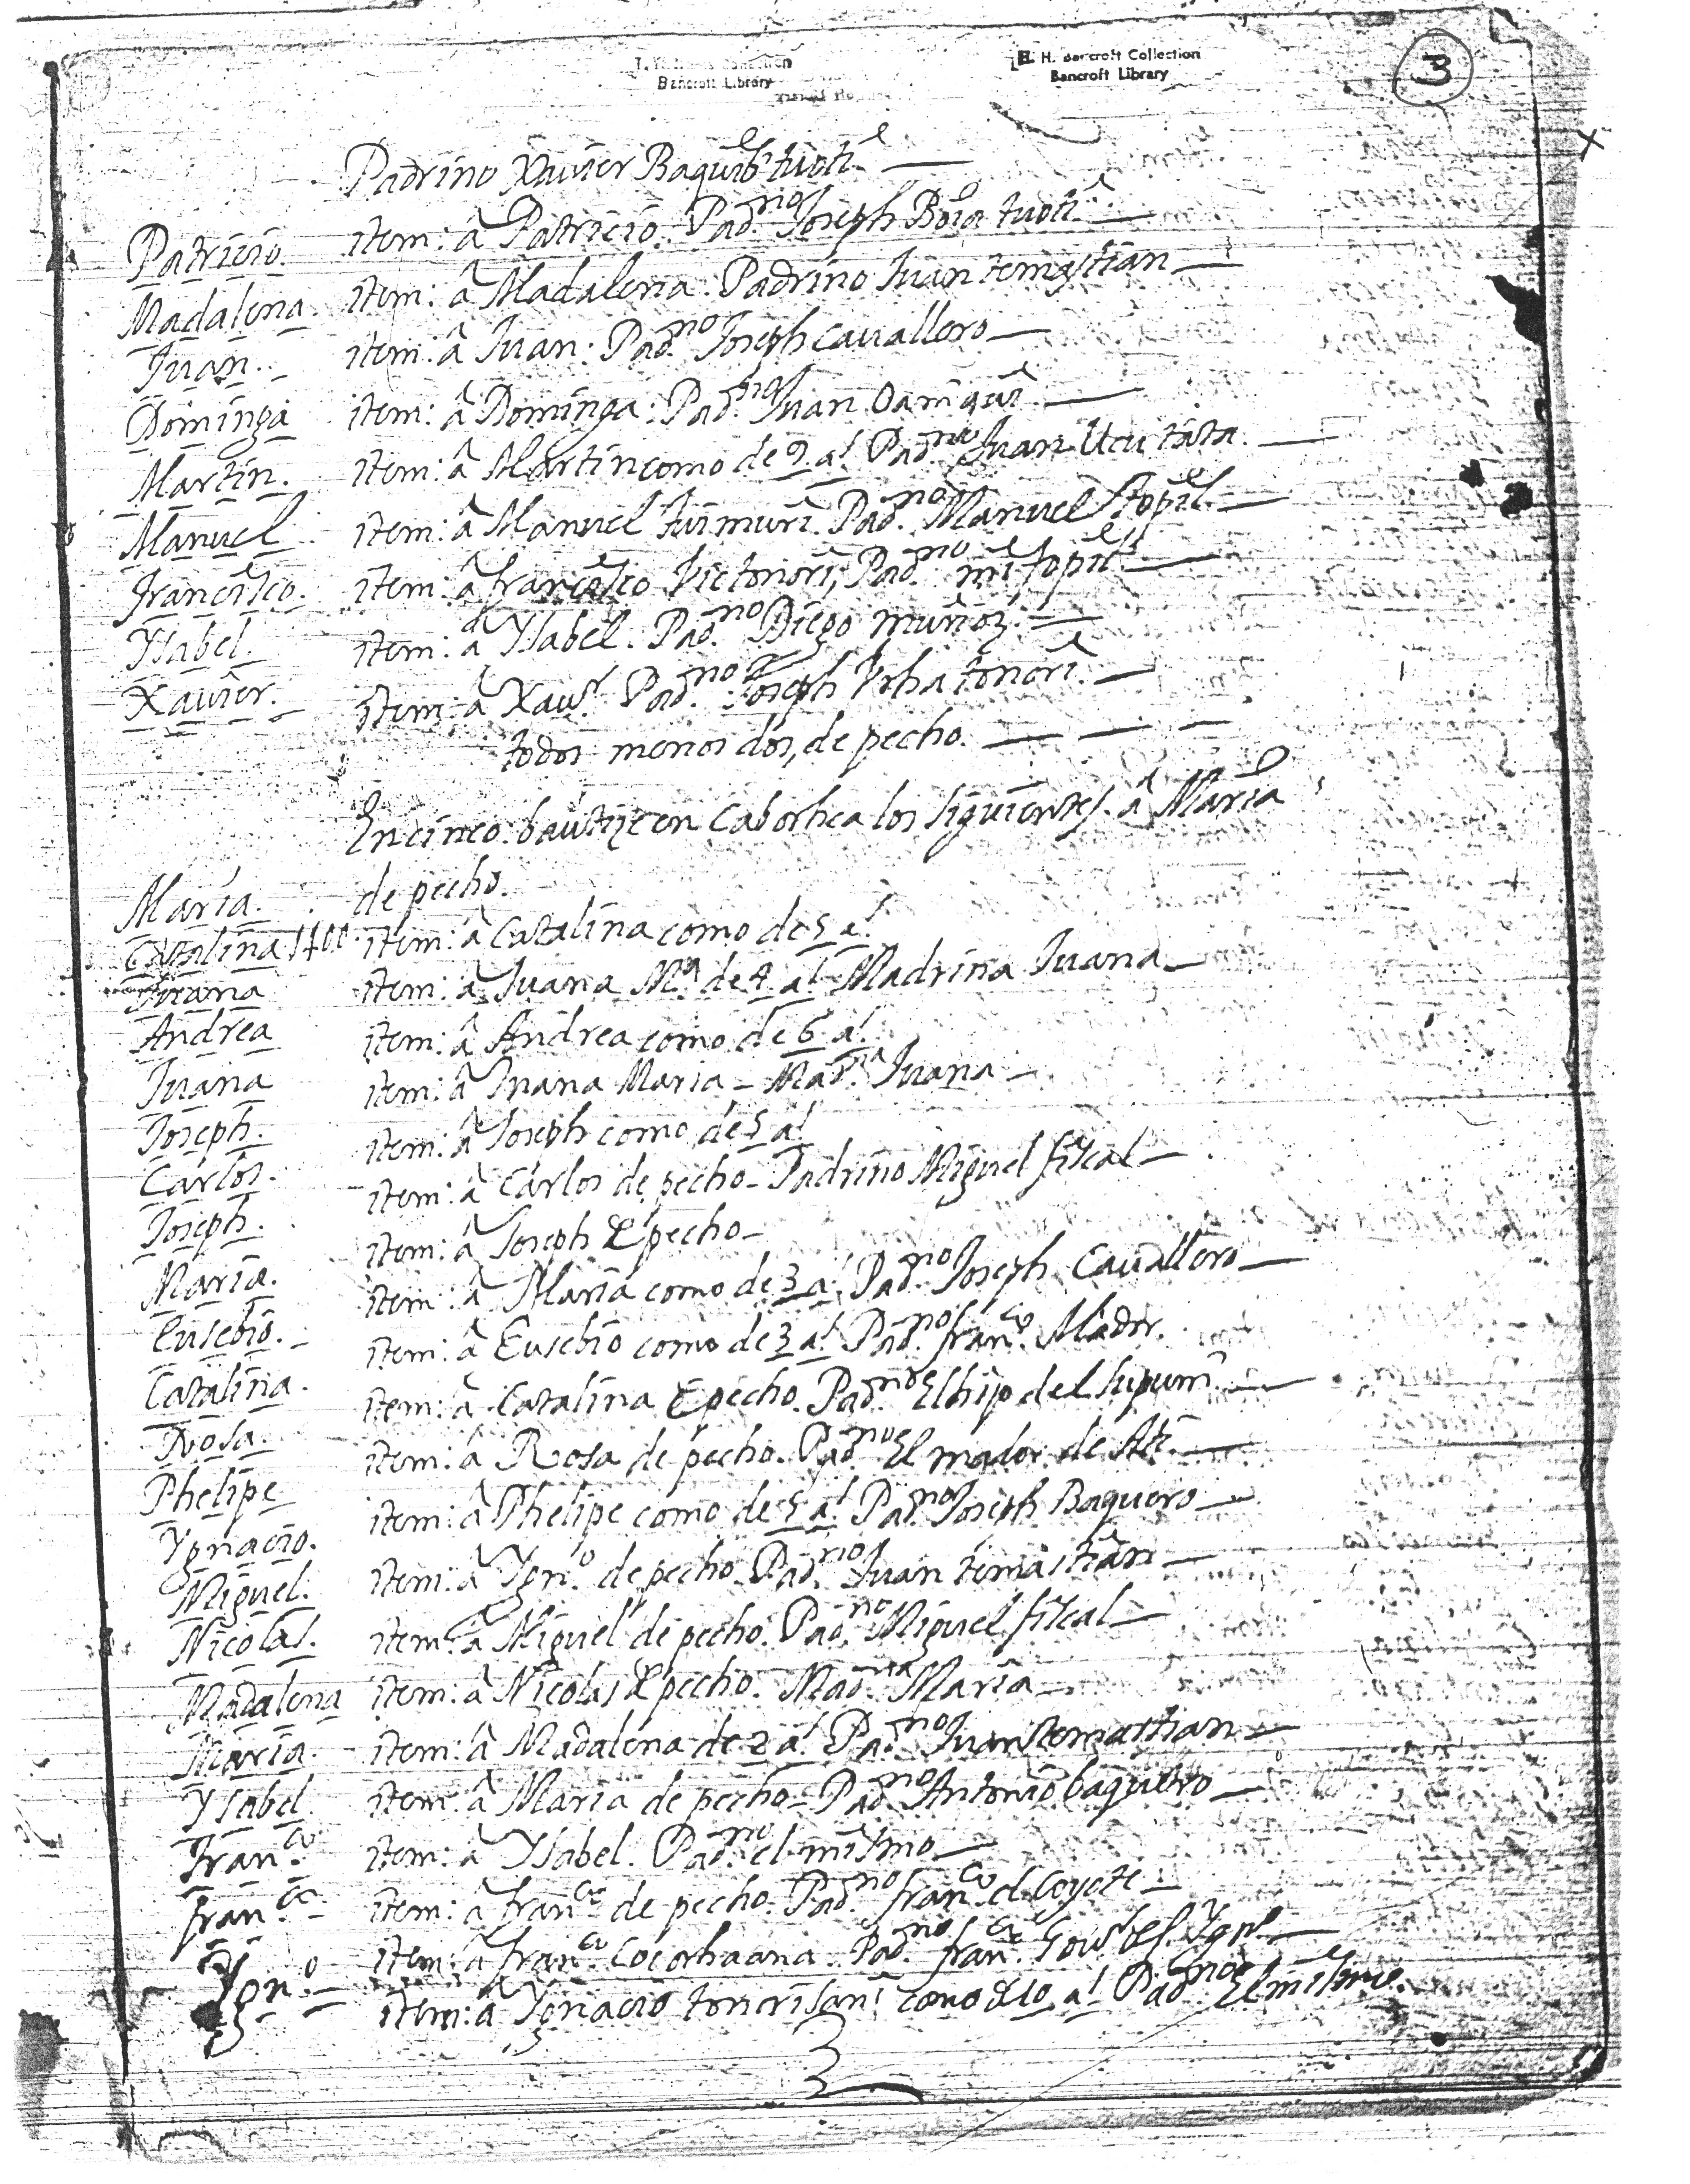 Bancroft Library
H. H. Bancroft Collection
Bancroft Library
3
Padrino Xavier
Patricio. item: â Patricio. Pad.no Joseph Bora tuoti
Madalena. item: â Madalena. Padrino Juan temastian
Juan. item: â Juan. Pad.no Joseph cavallero
Dominga item: â Dominga. Pad.no Juan
Martin. item: â Martin como de 9 a.s Pad.no Juan
Manuel item: â Manuel tuimuri. Pad.no Manuel topil
Francisco. item: â francisco Victonori, Pad.no mi topil
Ysabel. item: â Ysabel. Pad.no Diego muñoz.
Xavier. item: â Xavr. Pad.no Joseph
todos menos dos, de pecho.
En cinco bautize en Caborhca los siguientes. â Maria
Maria. de pecho.
Catalina item: â Catalina como de 5 a.s
Juana item: â Juana Ma. de 4 a.s Madrina Juana
Andrea item: â Andrea como de 6 a.s
Juana item: â Juana Maria - Mad.na Juana
Joseph. item: â Joseph como de 5 a.s
Carlos. item: â Carlos de pecho - Padrino Miguel fiscal
Joseph. item: â Joseph de pecho
Maria. item: â Maria como de 3 a.s Pad.no Joseph Cavallero
Eusebio. item: â Eusebio como de 3 a.s Pad.no fran.co Mador.
Catalina. item: â Catalina de pecho. Pad.no El hijo del
Rosa. item: â Rosa de pecho. Pad.no El mador de Ati.
Phelipe item: â Phelipe como de 5 a.s Pad.no Joseph Baquero
Ygnacio. item: â Ygn.o de pecho Pad.no Juan temastian
Miguel. item: â Miguel de pecho. Pad.no Miguel fiscal
Nicolas. item: â Nicolas de pecho. Mad.na Maria
Madalena item: â Madalena de 2 a.s Pad.no Juan temastian
Maria. item: â Maria de pecho - Pad.no Antonio baquero
Ysabel. item: â Ysabel. Pad.no el mismo
Fran.ca item: â fran.ca de pecho. Pad.no fran.co el Coyote
fran.ca item: â fran.ca Cocorhaana. Pad.no fran.co
Ygn.o item: â Ygnacio como de 10 a.s Pad.no El mismo.